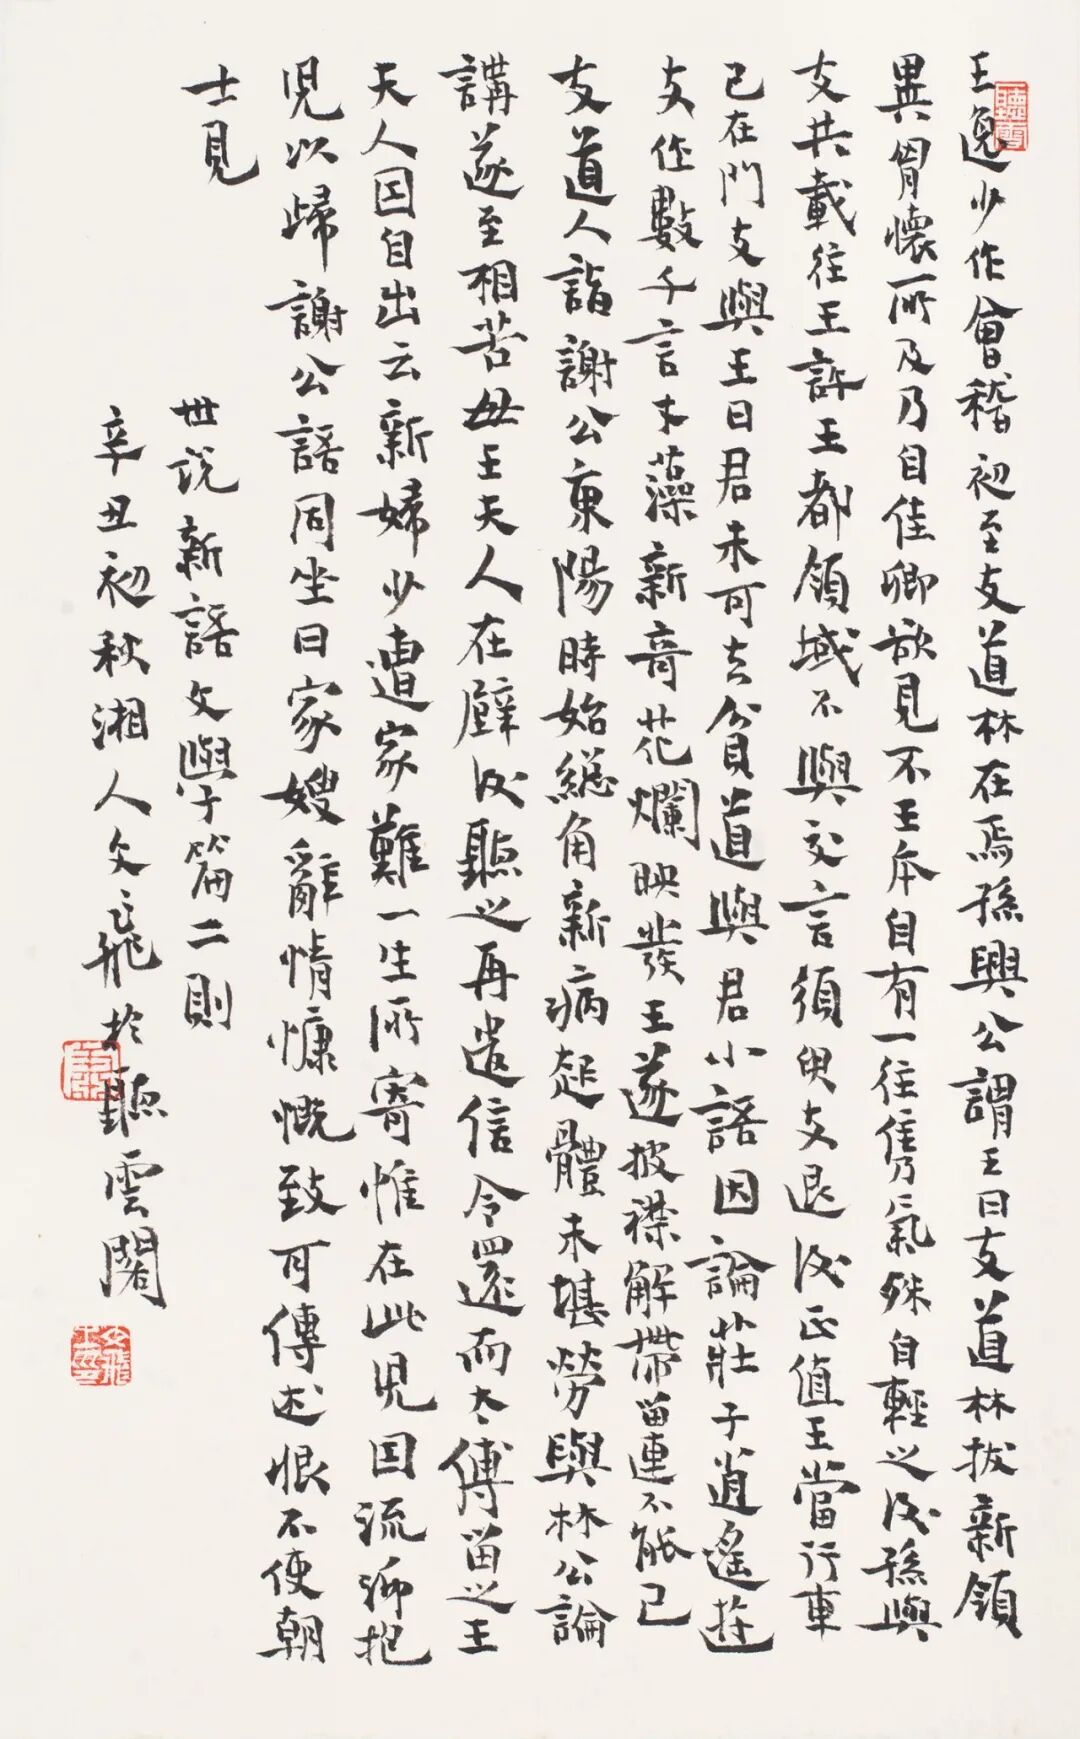 王逸少作會稽初至支道林在焉孫興公謂王曰支道林拔新領
異胷懷所及乃自佳卿欲見不王本自有一往雋氣殊自輕之後孫與
支共載往王許王都領域不與交言須臾支退後正值王當行車
已在門支與王曰君未可去貧道與君小語因論莊子逍遙遊
支作數千言才藻新奇花爛映發王遂披襟解帶留連不能已
支道人詣謝公東陽時始總角新病起體未堪勞與林公論
講遂至相苦母王夫人在壁後聽之再遣信令還而太傅留之王
夫人因自出云新婦少遭家難一生所寄惟在此兒因流涕抱
兒以歸謝公語同坐曰家嫂辭情慷慨致可傳述恨不使朝
士見
世說新語文學篇二則
辛丑初秋湘人文飛於聽雲閣
聽雲